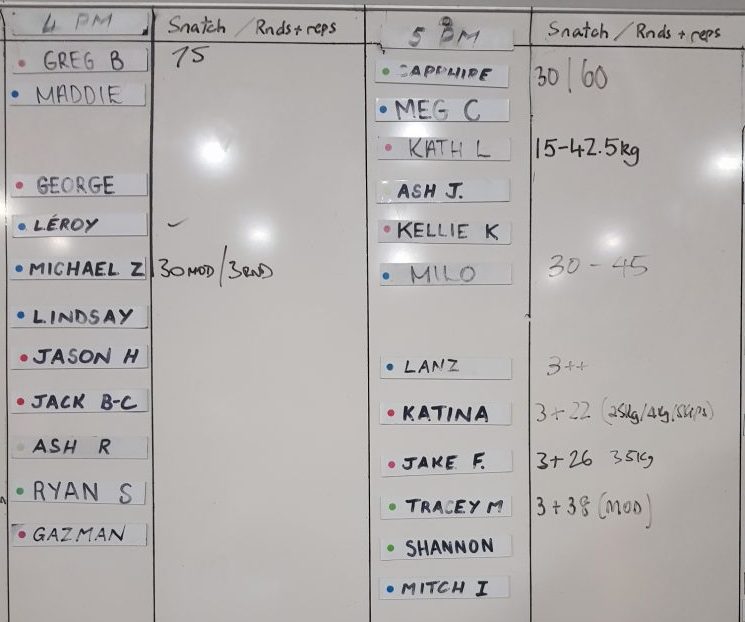 4 PM Snatch / Rnds + reps
GREG B 75
MADDIE
GEORGE
LÉROY
MICHAEL Z 30 MOD / 3 RND
LINDSAY
JASON H
JACK B-C
ASH R
RYAN S
GAZMAN
5 PM Snatch / Rnds + reps
SAPPHIRE 30 / 60
MEG C
KATH L 15-42.5kg
ASH J.
KELLIE K
MILO 30 - 45
LANZ 3++
KATINA 3+22 (25kg/4kg/
JAKE F. 3+26 35kg
TRACEY M 3+38 (MOD)
SHANNON
MITCH I